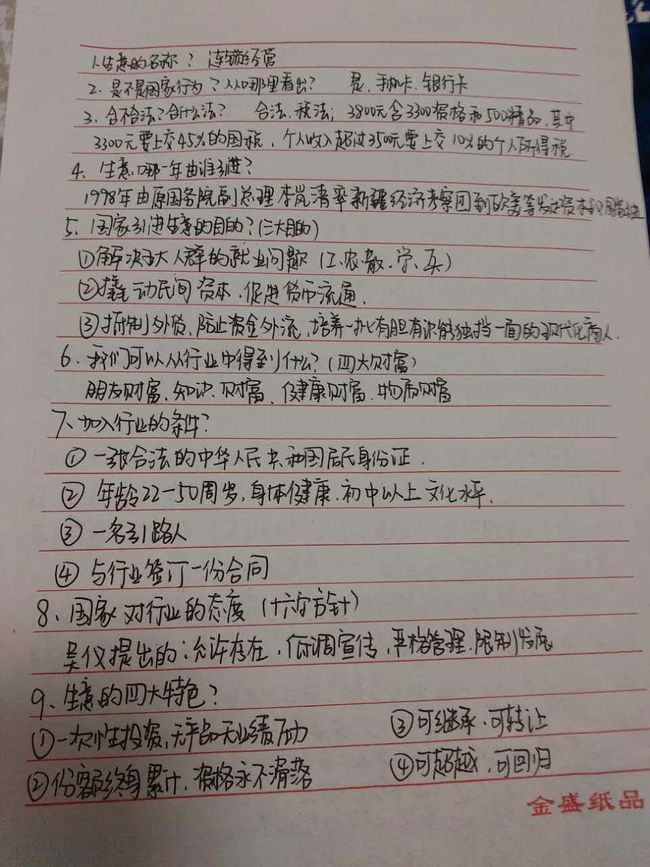 1.生意的名称? 连锁经营
2.是不是国家行为?从哪里看出? 是.手机卡.银行卡
3.合不合法?合什么法? 合法.税法;3800元含3300资格和500精品,其中
3300元要上交45%的国税,个人收入超过3500元要上交10%的个人所得税
4.生意哪一年由谁引进?
1998年由原国务院副总理李岚清率新疆经济考察团到欧美等发达资本
5.国家引进生意的目的?(三大目的)
①解决五大人群的就业问题(工.农.散.学.兵)
②撬动民间资本,促进货币流通.
③抵制外资,防止资金外流,培养一批有胆有识能独挡一面的现代化商人.
6.我们可以从行业中得到什么?(四大财富)
朋友财富.知识财富.健康财富.物质财富
7、加入行业的条件?
①一张合法的中华人民共和国居民身份证.
②年龄22-50周岁,身体健康.初中以上文化水平.
③一名引路人
④与行业签订一份合同
8、国家对行业的态度(十六字方针)
吴仪提出的:允许存在,低调宣传,严格管理.限制发展
9、生意的四大特色?
①一次性投资,无产品无业绩压力 ③可继承.可转让
②份额终身累计,资格永不滑落 ④可超越.可回归
金盛纸品